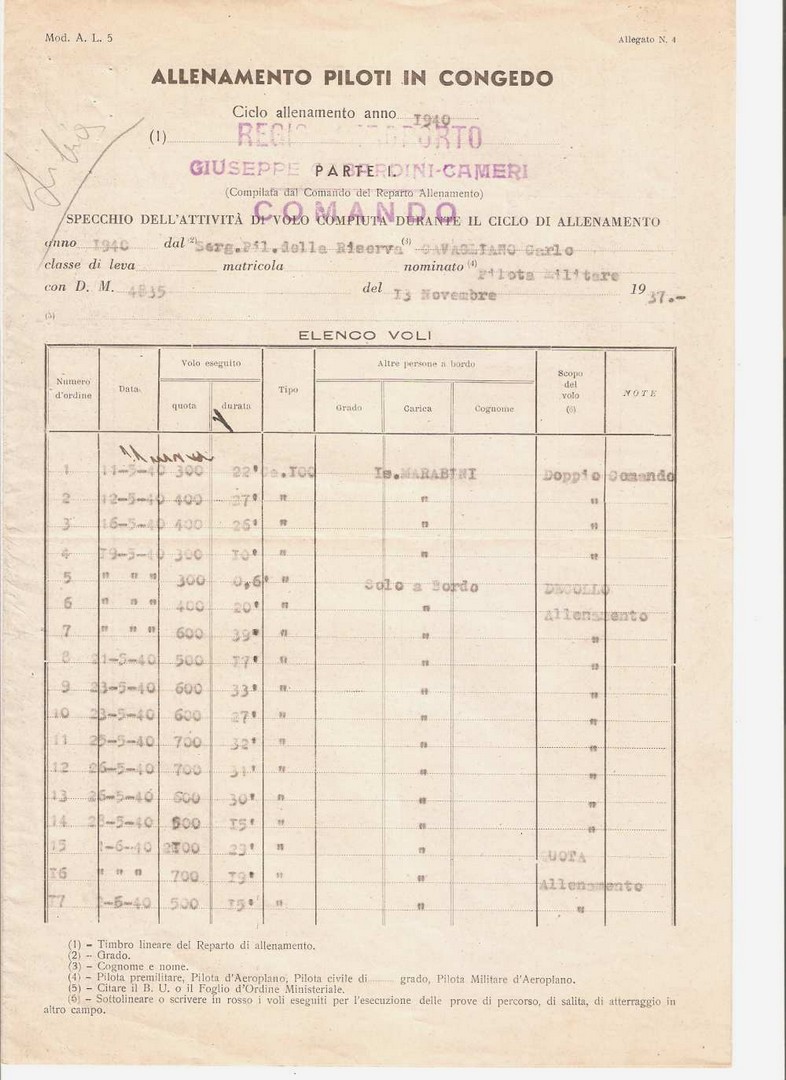 Mod. A. L. 5
Allegato N. 4
ALLENAMENTO PILOTI IN CONGEDO
Ciclo allenamento anno 1940
(1)
GIUSEPPE CAMERI
PARTE I.
(Compilata dal Comando del Reparto Allenamento)
COMANDO
SPECCHIO DELL'ATTIVITÀ DI VOLO COMPIUTA DURANTE IL CICLO DI ALLENAMENTO
anno 1940 dal (2) Serg.Pil.della Riserva (3) CAVAGLIANO Carlo
classe di leva matricola nominato (4) Pilota Militare
con D. M. 4835 del I3 Novembre 19 37.-
(5)
ELENCO VOLI
Numero d'ordine Data Volo eseguito quota durata Tipo Altre persone a bordo Grado Carica Cognome Scopo del volo (6) NOTE
1 11-5-40 300 22' Ca.IOO Is.MARABINI Doppio Comando
2 12-5-40 400 27' " " "
3 16-5-40 400 26' " " "
4 I9-5-40 300 I0' " " "
5 " " " 300 0,6' " Solo a Bordo DECOLLO
6 " " " 400 20' " " Allenamento
7 " " " 600 39' " " "
8 21-5-40 500 I7' " " "
9 23-5-40 600 33' " " "
10 23-5-40 600 27' " " "
11 25-5-40 700 32' " " "
12 26-5-40 700 31' " " "
13 26-5-40 600 30' " " "
14 28-5-40 500 I5' " " "
15 -6-40 2I00 23' " " QUOTA
I6 " " " 700 I9' " " Allenamento
I7 -6-40 500 I5' " " "
(1) - Timbro lineare del Reparto di allenamento.
(2) - Grado.
(3) - Cognome e nome.
(4) - Pilota premilitare, Pilota d'Aeroplano, Pilota civile di grado, Pilota Militare d'Aeroplano.
(5) - Citare il B. U. o il Foglio d'Ordine Ministeriale.
(6) - Sottolineare o scrivere in rosso i voli eseguiti per l'esecuzione delle prove di percorso, di salita, di atterraggio in
altro campo.